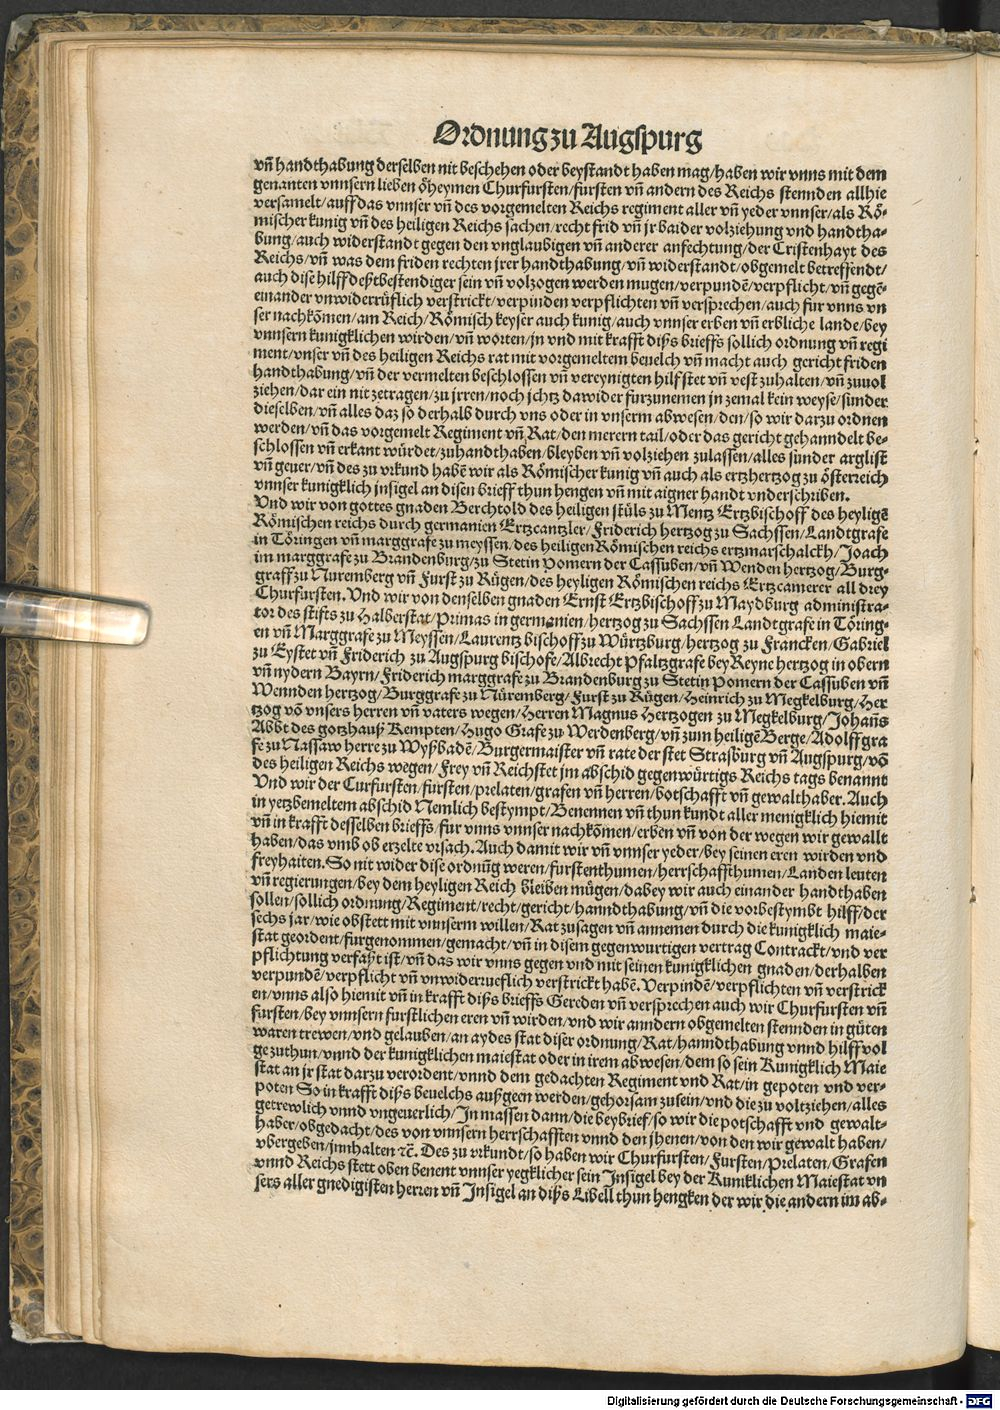 Ordnung zu Augspurg
vñ handthabung derselben nit beschehen oder beystandt haben mag/haben wir vnns mit dem
genanten vnnsern lieben öheymen Churfursten/fursten vñ andern des Reichs stennden allhie
versamelt/auff das vnnser vñ des vorgemelten Reichs regiment aller vñ yeder vnnser/als Rö-
mischer kunig vñ des heiligen Reichs sachen/recht frid vñ jr baider volziehung vnd handtha-
bung/auch widerstandt gegen den vnglaubigen vñ anderer anfechtung/der Cristenhayt des
Reichs/vñ was dem friden rechten jrer handthabung/vñ widerstandt/obgemelt betreffendt/
auch dise hilff deßtbestendiger sein vñ volzogen werden mugen/verpundẽ/verpflicht/vñ gegẽ-
einander vnwiderrüflich verstrickt/verpinden verpflichten vñ versprechen/auch fur vnns vn
ser nachkõmen/am Reich/Römisch keyser auch kunig/auch vnnser erben vñ erbliche lande/bey
vnnsern kunigklichen wirden/vñ worten/jn vnd mit krafft diß brieffs sollich ordnung vñ regi
ment/vnser vñ des heiligen Reichs rat mit vorgemeltem beuelch vñ macht auch gericht friden
handthabung/vñ der vermelten beschlossen vñ vereynigten hilf stet vñ vest zuhalten/vñ zuuol
ziehen/dar ein nit zetragen/zu jrren/noch jchtz dawider furzunemen jn zemal kein weyse/sunder
dieselben/vñ alles daz so derhalb durch vns oder in vnserm abwesen/den/so wir darzu ordnen
werden/vñ das vorgemelt Regiment vñ Rat/den merern tail/oder das gericht gehanndelt be-
schlossen vñ erkant würdet/zuhandthaben/bleyben vñ volziehen zulassen/alles sunder arglist
vñ geuer/vñ des zu vrkund habẽ wir als Römischer kunig vñ auch als ertzhertzog zu österreich
vnnser kunigklich jnsigel an disen brieff thun hengen vñ mit aigner handt vnderschriben.
Vnd wir von gottes gnaden Berchtold des heiligen stüls zu Mentz Ertzbischoff des heyligẽ
Römischen reichs durch germanien Ertzcantzler/Friderich hertzog zu Sachssen/Landtgrafe
in Töringen vñ marggrafe zu meyssen/des heiligen Römischen reichs ertzmarschalckh/Joach
im marggrafe zu Brandenburg/zu Stetin pomern der Cassuben/vñ Wenden hertzog/Burg-
graff zu Nuremberg vñ Furst zu Rügen/des heyligen Römischen reichs Ertzcamerer all drey
Churfursten. Vnd wir von denselben gnaden Ernst Ertzbischoff zu Maydburg administra-
tor des stifts zu Halberstat/primas in germanien/hertzog zu Sachssen Landtgrafe in Töring-
en vñ Marggrafe zu Meyssen/Laurentz bischoff zu Würtzburg/hertzog zu Francken/Gabriel
zu Eystet vñ Friderich zu Augspurg bischofe/Albrecht Pfaltzgrafe bey Reyne hertzog in obern
vñ nydern Bayrn/Friderich marggrafe zu Brandenburg zu Stetin Pomern der Cassuben vñ
Wennden hertzog/Burggrafe zu Nüremberg/Furst zu Rügen/Heinrich zu Megkelburg/Her
tzog võ vnsers herren vñ vaters wegen/Herren Magnus Hertzogen zu Megkelburg/Johañs
Abbt des gotzhauß Kempten/Hugo Grafe zu Werdenberg/vñ zum heiligẽ Berge/Adolff gra
fe zu Nassaw herre zu Wyßbadẽ/Burgermaister vñ rate der stet Strasburg vñ Augspurg/võ
des heiligen Reichs wegen/Frey vñ Reichstet jm abschid gegenwürtigs Reichs tags benannt
Vnd wir der Curfursten/fürsten/prelaten/grafen vñ herren/botschafft vñ gewalthaber. Auch
in yetzbemeltem abschid Nemlich bestympt/Benennen vñ thun kundt aller menigklich hiemit
vñ in krafft desselben brieffs/fur vnns vnnser nachkõmen/erben vñ von der wegen wir gewallt
haben/das vmb ob erzelte vrsach. Auch damit wir vñ vnnser yeder/bey seinen eren wirden vnd
freyhaiten. So nit wider dise ordnũg weren/furstenthumen/herrschaffthumen/Landen leuten
vñ regierungen/bey dem heyligen Reich bleiben mügen/dabey wir auch einander handthaben
sollen/sollich ordnung/Regiment/recht/gericht/hanndthabung/vñ die vorbestymbt hilff/der
sechs jar/wie obstett mit vnnserm willen/Rat zusagen vñ annemen durch die kunigklich maie-
stat geordent/furgenommen/gemacht/vñ in disem gegenwurtigen vertrag Contrackt/vnd ver
pflichtung verfaßt ist/vñ das wir vnns gegen vnd mit seinen kunigklichen gnaden/derhalben
verpundẽ/verpflicht vñ vnwiderrueflich verstrickt habẽ. Verpindẽ/verpflichten vñ verstrick
en/vnns also hiemit vñ in krafft diß brieffs Gereden vñ versprechen auch wir Churfursten vñ
fursten/bey vnnsern furstlichen eren vñ wirden/vnd wir anndern obgemelten stennden in güten
waren trewen/vnd gelauben/an aydes stat diser ordnung/Rat/hanndthabung vnnd hilff vol
ge zuthun/vnnd der kunigklichen maiestat oder in irem abwesen/dem so sein Kunigklich Maie
stat an jr stat darzu verordent/vnnd dem gedachten Regiment vnd Rat/in gepoten vnd ver-
poten So in krafft diß beuelchs außgeen werden/gehorsam zusein/vnd die zu voltziehen/alles
getrewlich vnnd vngeuerlich/In massen dann/die beybrief/so wir die potschafft vnd gewalt-
haber/obgedacht/des von vnnsern herrschafften vnnd den jhenen/von den wir gewalt haben/
vbergeben/jnnhalten ⁊c̃. Des zu vrkundt/so haben wir Churfursten/Fursten/Prelaten/Grafen
vnnd Reichs stett oben benent vnnser yegklicher sein Insigel bey der Kuniklichen Maiestat vn
sers aller gnedigisten herren vñ Insigel an diß Libell thun hengken der wir die andern im ab-
Digitalisierung gefördert durch die Deutsche Forschungsgemeinschaft - DFG